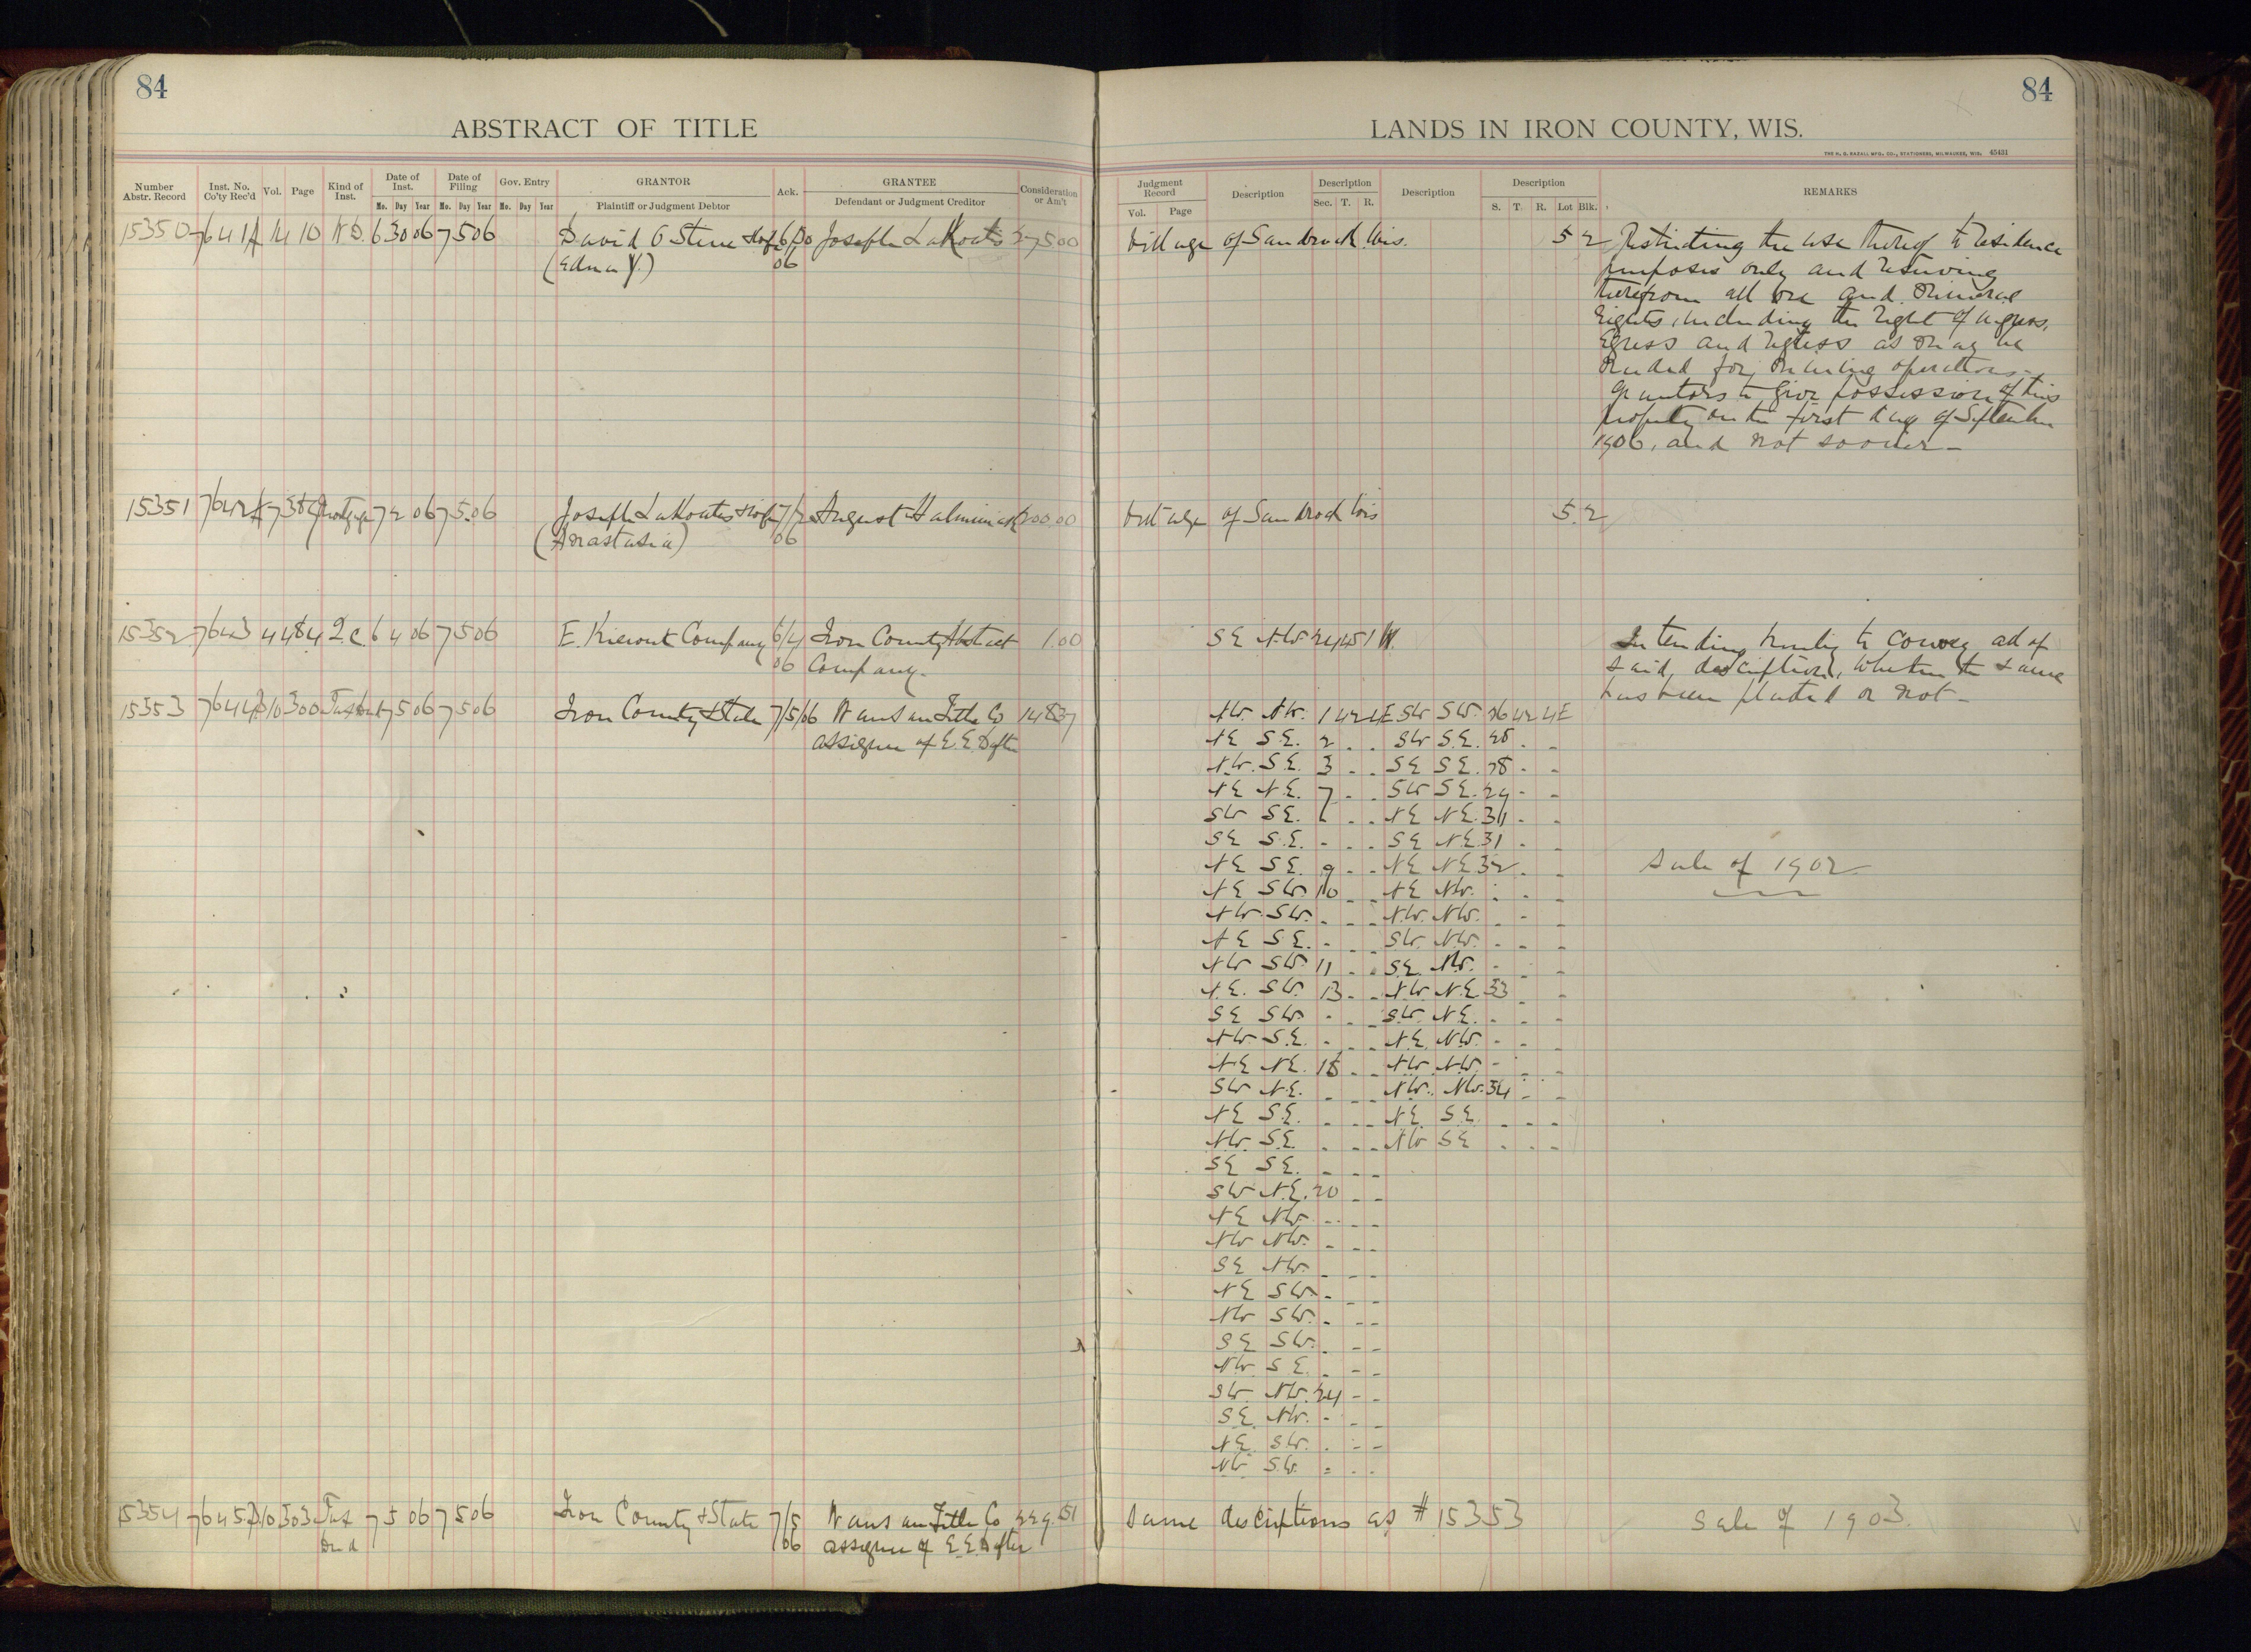 84
84
ABSTRACT OF TITLE
LANDS IN IRON COUNTY, WIS.
THE H. G. RAZALL MFG. CO., STATIONERS, MILWAUKEE, WIS. 45431
Number Abstr. Record
Inst. No. Co'ty Rec'd
Vol.
Page
Kind of Inst.
Date of Inst.
Mo. Day Year
Date of Filing
Mo. Day Year
Gov. Entry
Mo. Day Year
GRANTOR
Plaintiff or Judgment Debtor
Ack.
GRANTEE
Defendant or Judgment Creditor
Consideration or Am't
Judgment Record
Vol. Page
Description
Description
Sec. T. R.
Description
Description
S. T. R. Lot Blk.
REMARKS
15350 7641 14 10 W.D. 6 30 06 7 5 06 David O Steve & Wife 6/30 Joseph LaKoatis 275 00 Village of Sandrock Wis. 5 2 Restricting the use thereof to residence
(Edna Y.) 06 purposes only and reserving
therefrom all ore and mineral
rights, including the right of ingress,
egress and regress as may be
needed for mining operations.
Grantors to give possession of this
property on the first day of September
1906, and not sooner—
15351 7642 7 386 Mortgage 7 2 06 7 5 06 Joseph LaKoatis & Wife 7/2 August 200.00 Village of Sandrock Wis 5 2
(Anastasia) 06
15352 7643 4 484 Q.C. 6 4 06 7 5 06 E. Company 6/4 Iron County Abstract 1.00 SE NW 24 45 1 W. Intending hereby to convey all of
06 Company. said description, whether the same
has been platted or not—
15353 7644 10 300 7 5 06 7 5 06 Iron County & State 7/5/06 Wausau Title Co 148 37 NW. NW. 1 42 4E SW SW. 26 42 4E
assignee of E.E. NE SE. 2 . . SW SE. 28 . -
NW. SE. 3 - . SE SE. 28 - -
NE NE. 7 - . SW SE. 29 - -
SW SE. . . NE NE. 31 - -
SE SE. - . . SE NE 31 . -
NE SE. 9 - - NE NE 32 . - Sale of 1902
NE SW 10 - - NE NW. - - -
NW SW. - - - NW. NW. - - -
NE SE. - - - SW. NW. - - -
NW SW. 11 - - SE. NW. - - -
NE. SW. 13 - - NW. NE. 33 - -
SE SW - - - SW. NE. - - -
NW. SE. - - - NE. NW. - - -
NE NE. 15 - - NW. NW. - - -
SW NE. - - - NW. NW. 34 - -
NE SE. - - - NE SE. - - -
NW. SE. - - - NW SE - - -
SE SE. - - -
SW NE. 20 - -
NE NW. - - -
NW NW. - - -
SE NW. - - -
NE SW. - - -
NW SW. - - -
SE SW. - - -
NW SE. - - -
SW. NW. 24 - -
SE. NW. - - -
NE SW. - - -
NW SW. - - -
15354 7645 10 303 Tax 7 5 06 7 5 06 Iron County & State 7/5 Wausau Title Co 229.51 Same descriptions as # 15353 Sale of 1903.
Deed 06 assignee of E.E.